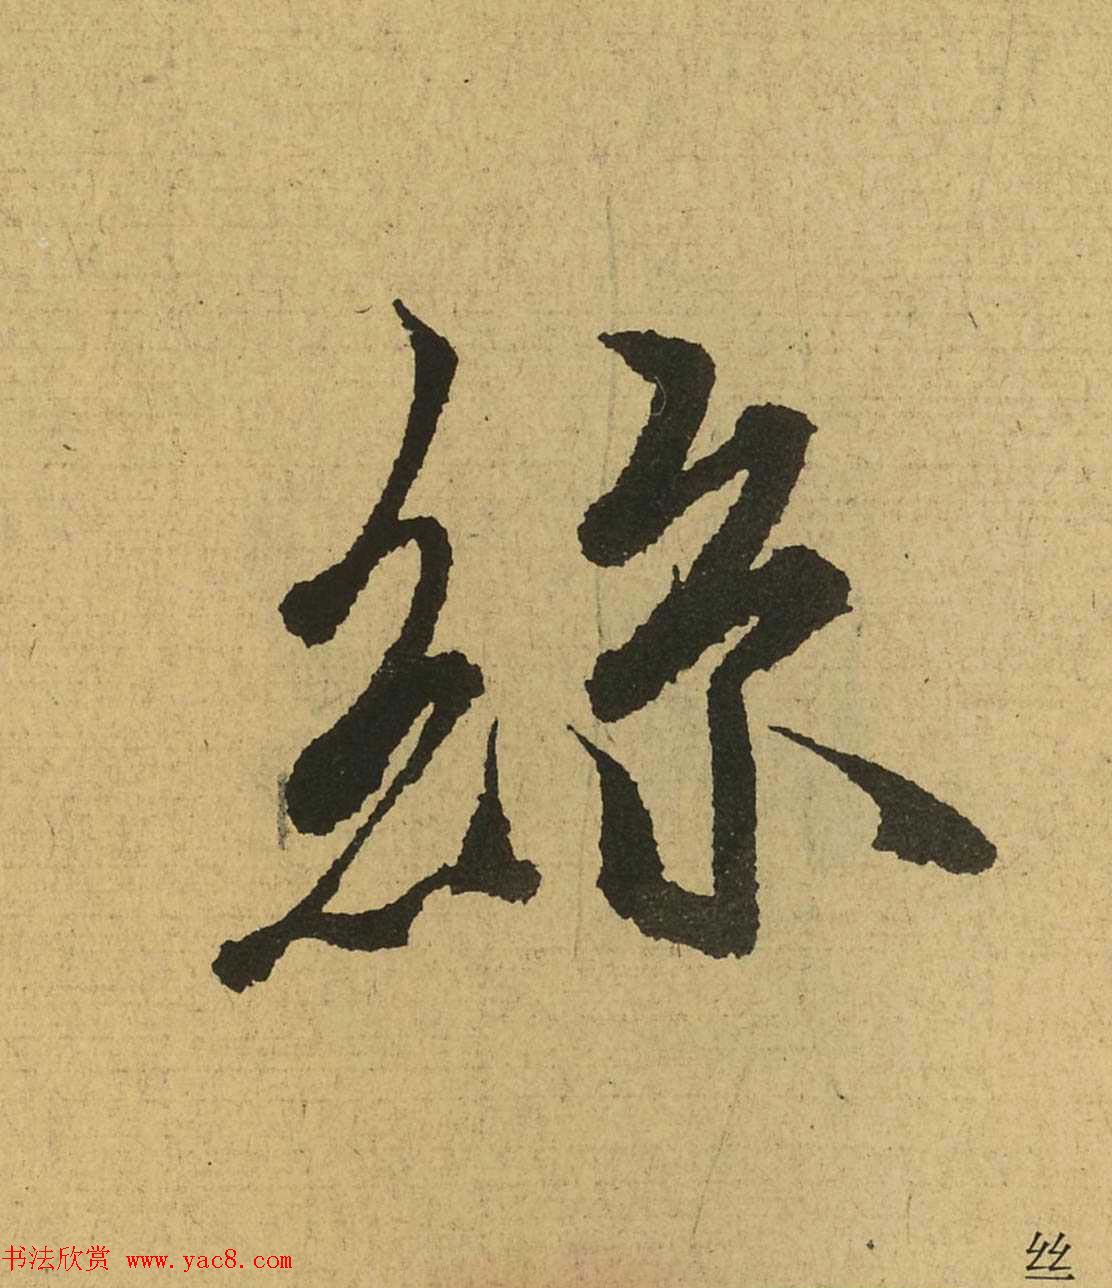 絲
丝
书法欣赏 www.yac8.com